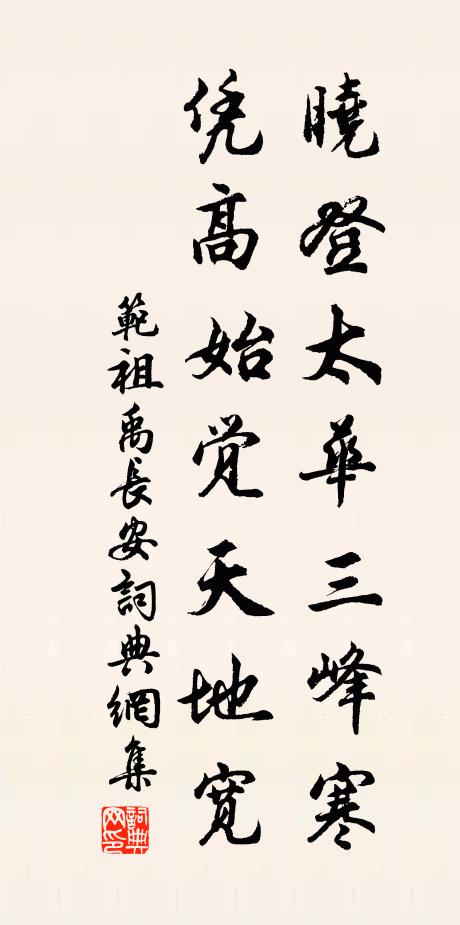 曉登太華三峰寒
凭高始覺天地寬
範祖禹長安詞典網集
詞典网印